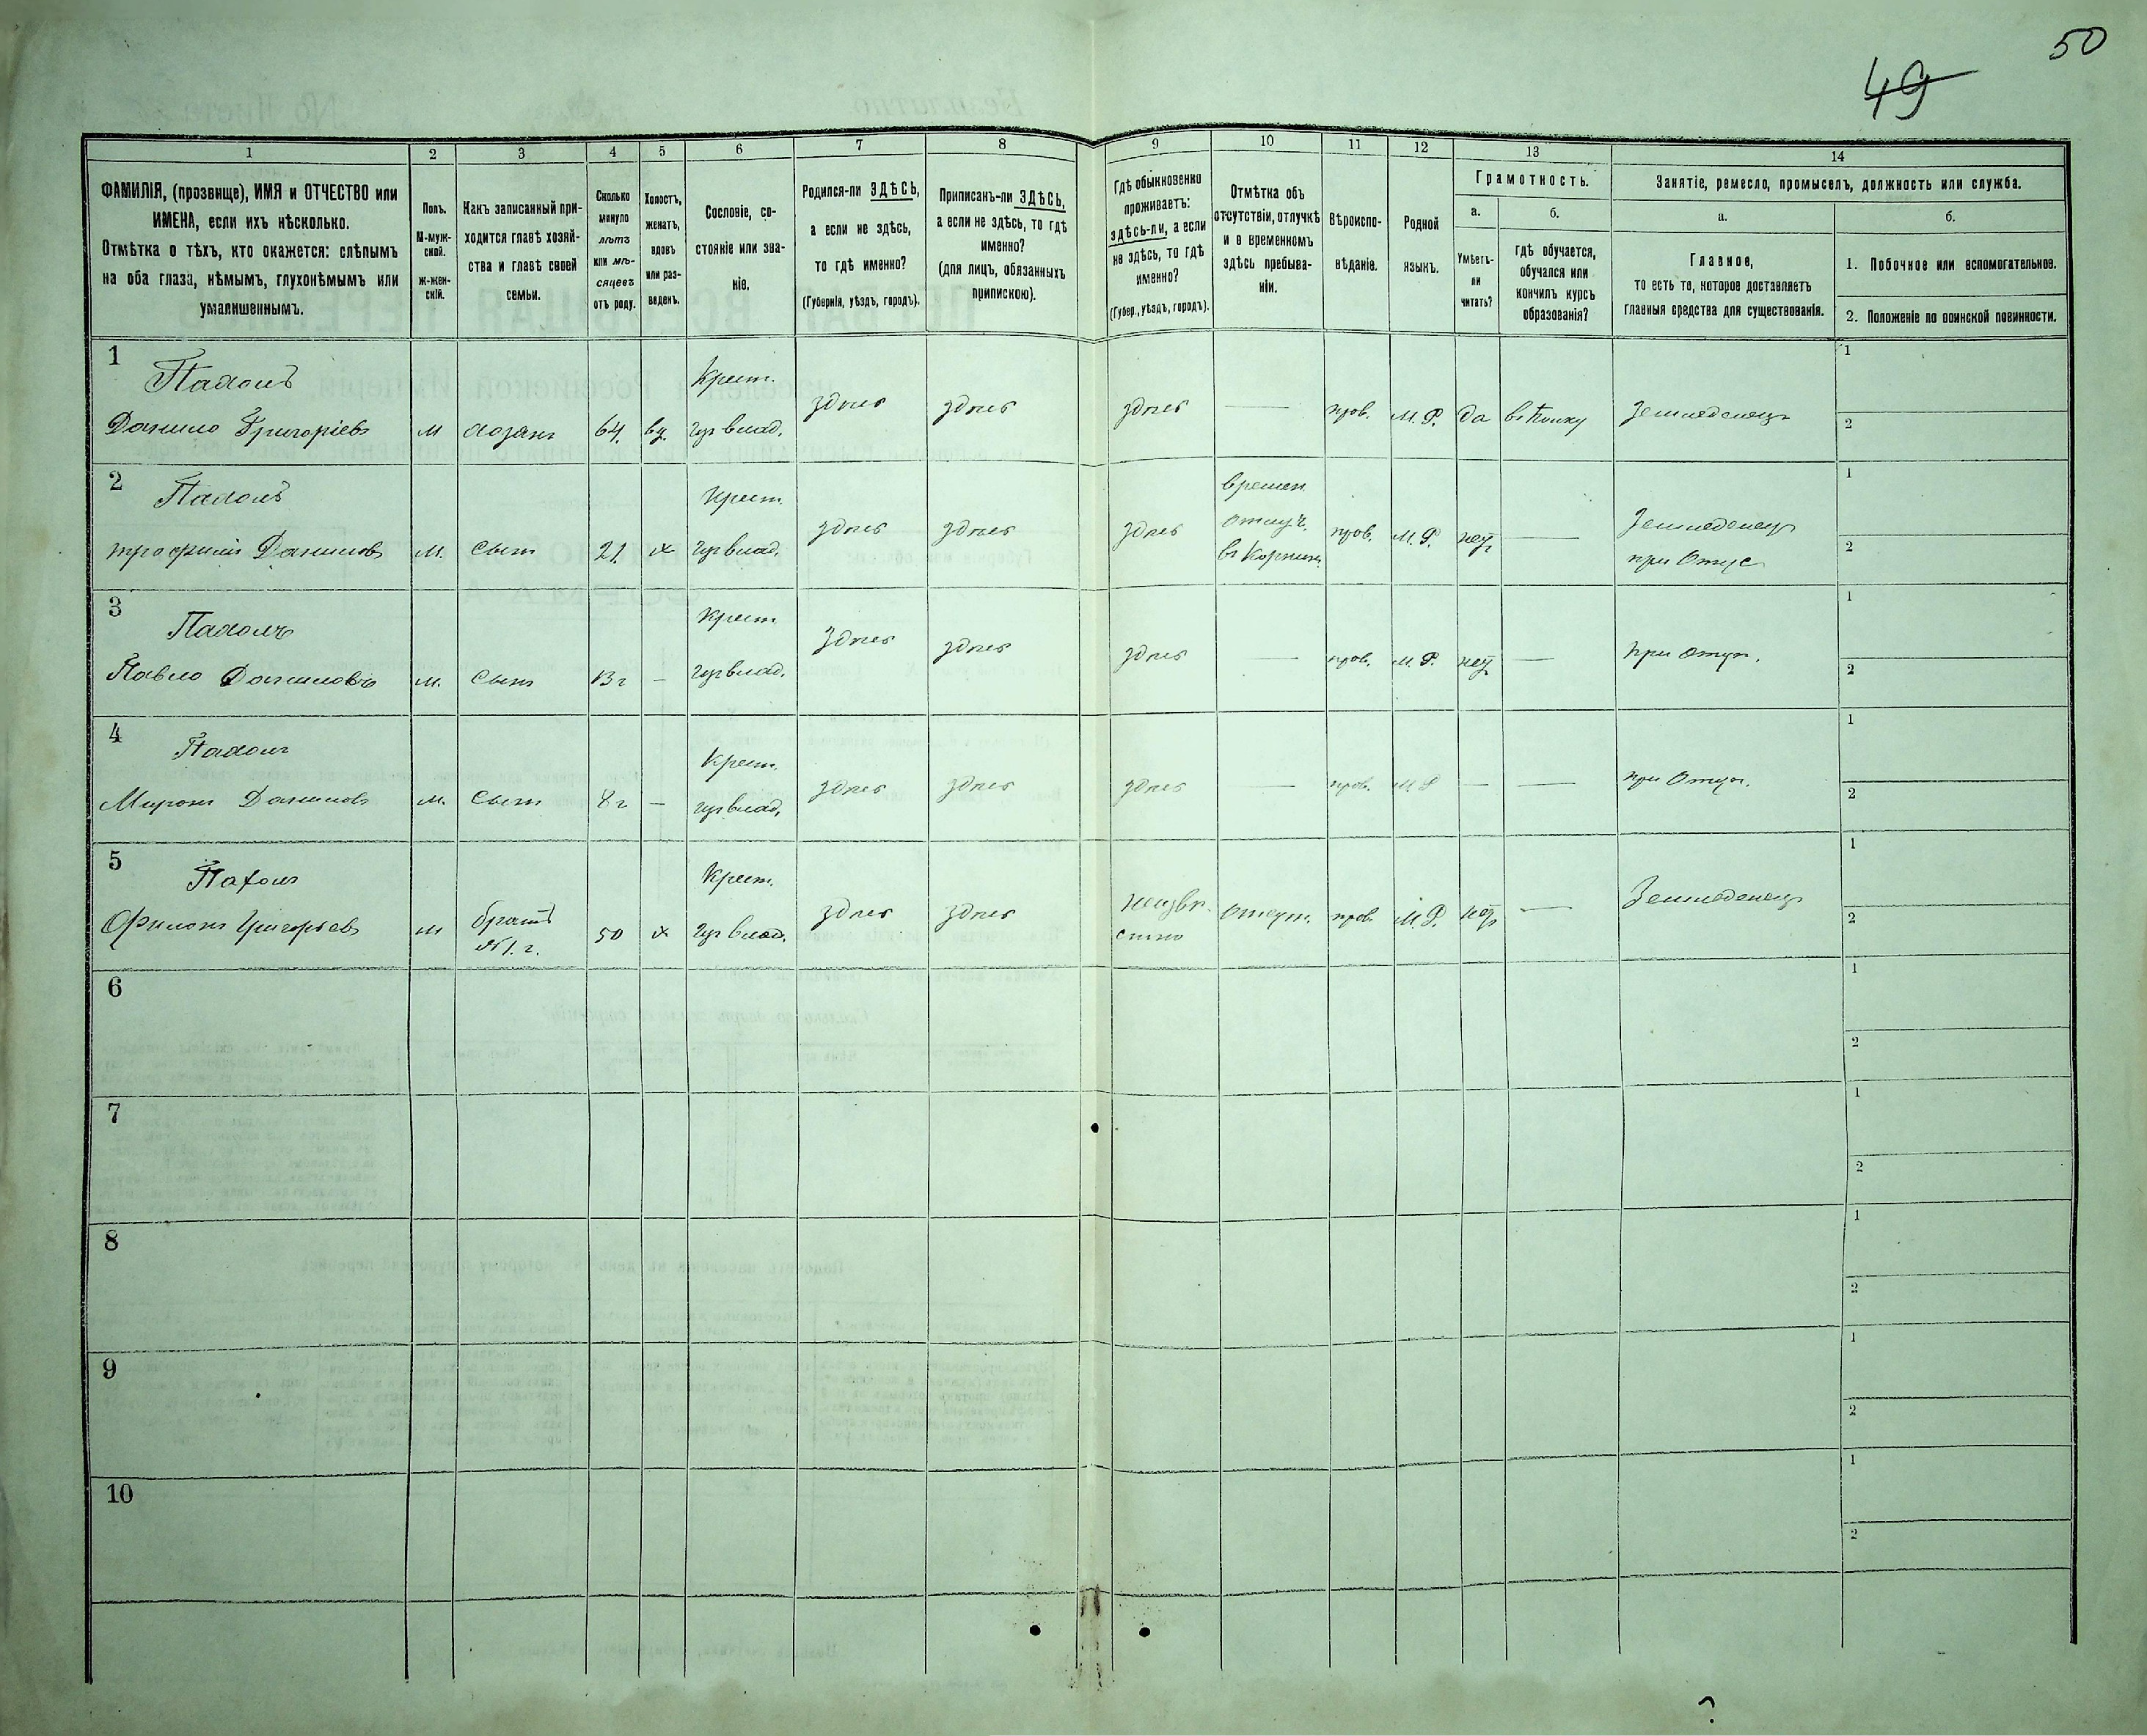 50
49
1
2
3
4
5
6
7
8
9
10
11
12
13
14
ФАМИЛІЯ, (прозвище), ИМЯ и ОТЧЕСТВО или
ИМЕНА, если ихъ нѣсколько.
Отмѣтка о тѣхъ, кто окажется: слѣпымъ
на оба глаза, нѣмымъ, глухонѣмымъ или
умалишеннымъ.
Полъ.
М-муж-
ской.
ж-жен-
скій.
Какъ записанный при-
ходится главѣ хозяй-
ства и главѣ своей
семьи.
Сколько
минуло
лѣтъ
или мѣ-
сяцевъ
отъ роду.
Холостъ,
женатъ,
вдовъ
или раз-
веденъ.
Сословіе, со-
стояніе или зва-
ніе.
Родился-ли ЗДѢСЬ,
а если не здѣсь,
то гдѣ именно?
(Губернія, уѣздъ, городъ).
Приписанъ-ли ЗДѢСЬ,
а если не здѣсь, то гдѣ
именно?
(для лицъ, обязанныхъ
припискою).
Гдѣ обыкновенно
проживаетъ:
здѣсь-ли, а если
не здѣсь, то гдѣ
именно?
(Губер., уѣздъ, городъ).
Отмѣтка объ
отсутствіи, отлучкѣ
и о временномъ
здѣсь пребыва-
ніи.
Вѣроиспо-
вѣданіе.
Родной
языкъ.
Грамотность.
а.
Умѣетъ-
ли
читать?
б.
гдѣ обучается,
обучался или
кончилъ курсъ
образованія?
Занятіе, ремесло, промыселъ, должность или служба.
а.
Главное,
то есть то, которое доставляетъ
главныя средства для существованія.
б.
1. Побочное или вспомогательное.
2. Положеніе по воинской повинности.
1
Данило Григоріевъ
м
хозяин
64.
вд.
Крест.
здѣсь
здѣсь
здѣсь
—
прав.
М. Р.
да
Земледелец
1
2
2
Данилов
м.
сын
21.
х
Крест.
здѣсь
здѣсь
здѣсь
Времен.
отлуч.
прав.
М. Р.
нет
—
Земледелец
при Отце
1
2
3
Павло Даниловъ
м.
сын
13 г
—
Крест.
здѣсь
здѣсь
здѣсь
—
прав.
М. Р.
нет
—
при отце.
1
2
4
Мирон Данилов
м.
сын
8 г
—
Крест.
здѣсь
здѣсь
здѣсь
—
прав.
М Р
—
—
при Отце.
1
2
5
Пахол
Филон Григорьев
м
братъ
№ 1. г.
50
х
Крест.
здѣсь
здѣсь
неизвѣ-
стно
отсут.
прав.
М. Р.
нет
—
Земледелец
1
2
6
1
2
7
1
2
8
1
2
9
1
2
10
1
2
?